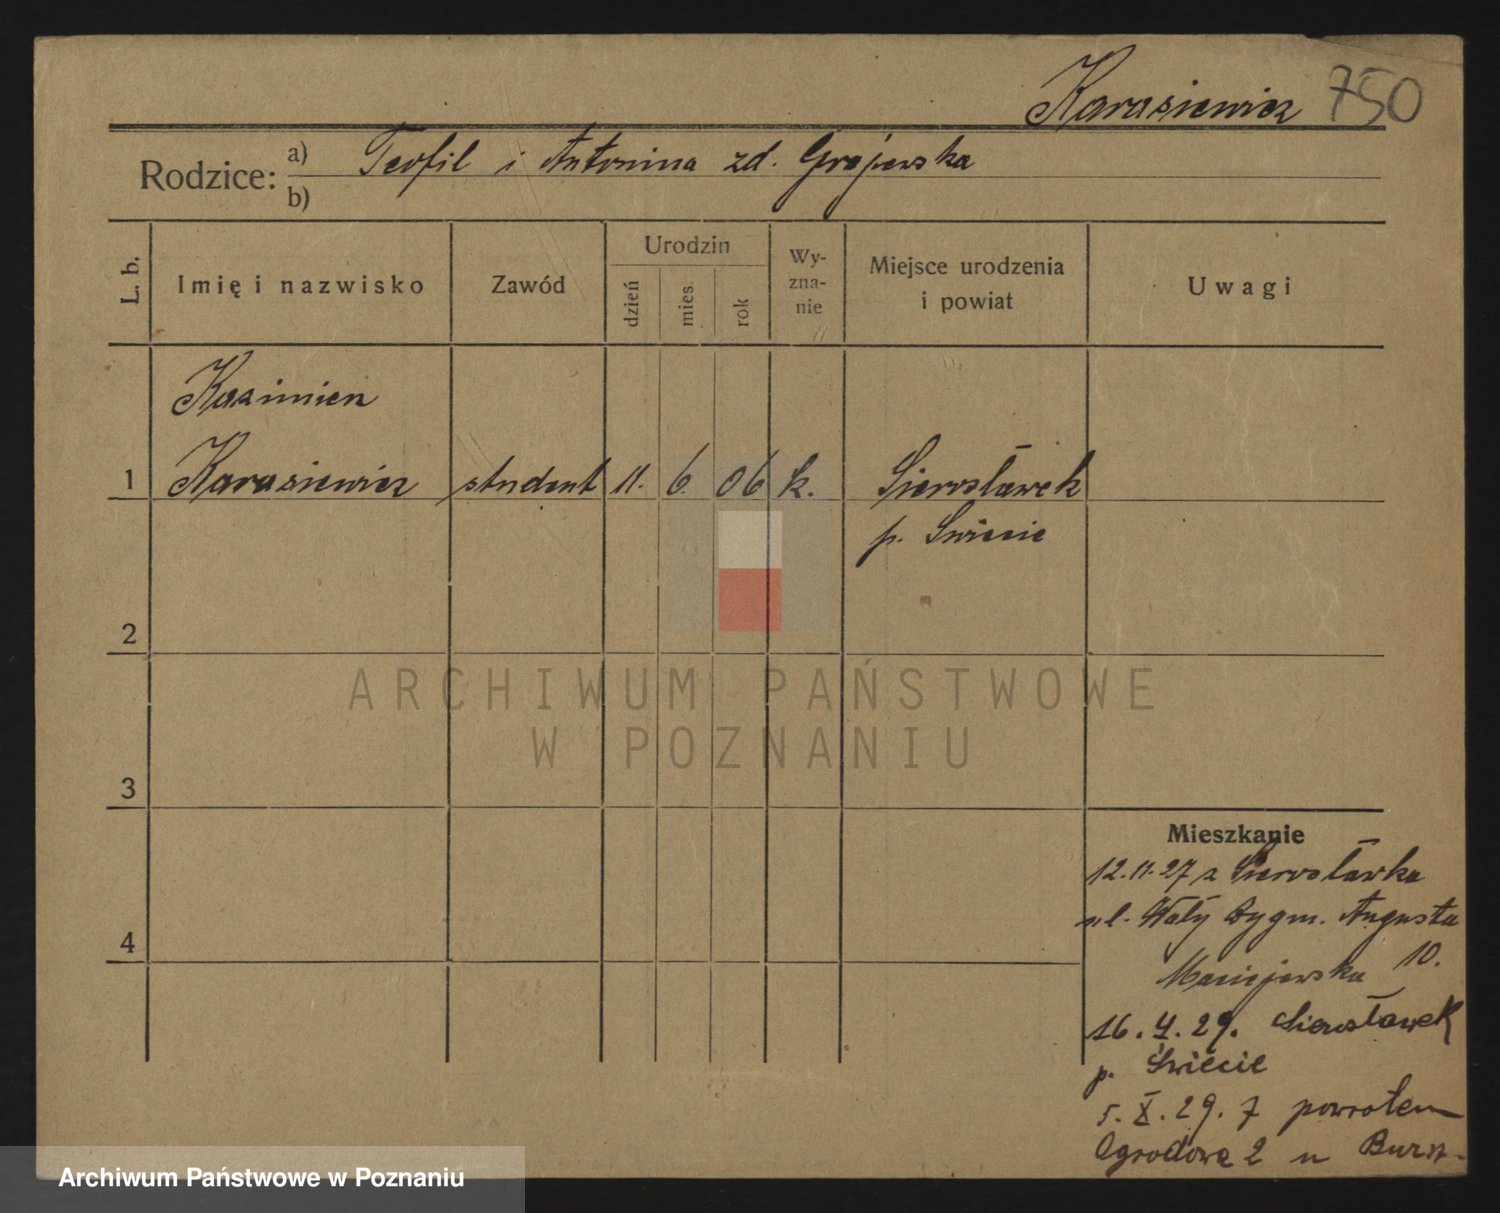 Karasiewicz 750
Rodzice: a) Teofil i Antonina zd. Grajewska
b)
L. b.
Imię i nazwisko
Zawód
Urodzin
dzień
mies.
rok
Wy-
zna-
nie
Miejsce urodzenia
i powiat
Uwagi
Kazimierz
1 Karasiewicz student 11. 6. 06 k. Sierosławek
p. Świecie
2
3
4
Mieszkanie
12.11.27 z Sierosławka
ul. Wały Zygm. Augusta
Maciejewska 10.
16. 4. 29. Sierosławek
p. Świecie
5. X. 29. z powrotem
Ogrodowa 2 u
ARCHIWUM PAŃSTWOWE
W POZNANIU
Archiwum Państwowe w Poznaniu